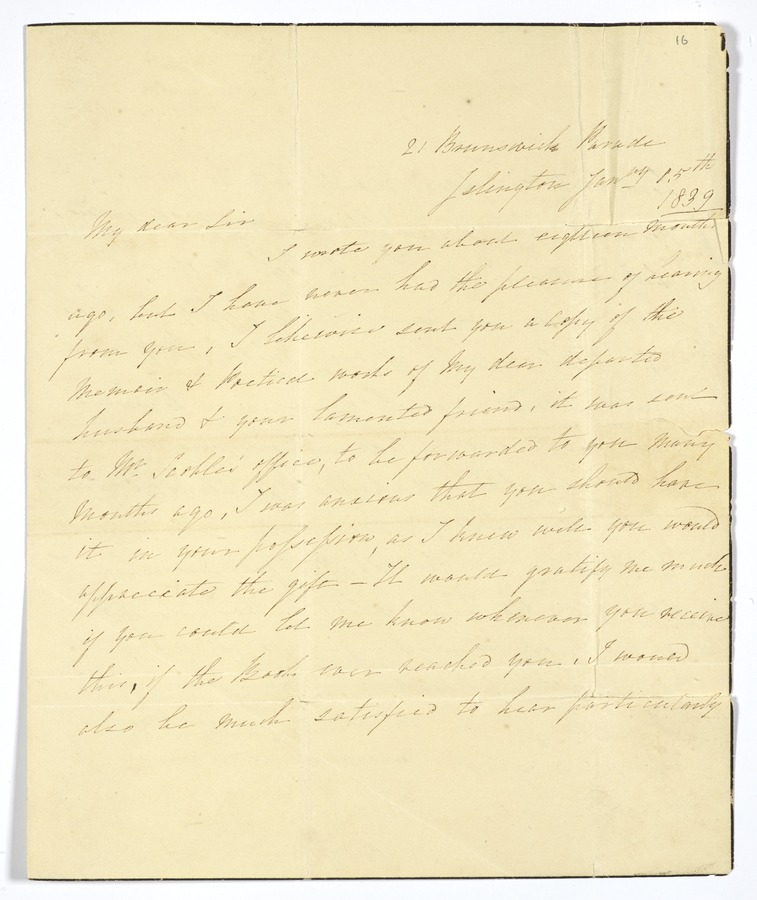 16
21 Brunswick Parade
Islington Jany 15th
1839
My dear Sir
I wrote you about eighteen Months
ago, but I have never had the pleasure of hearing
from you, I likewise sent you a Copy of the
Memoir & Poetical works of My dear departed
husband & your lamented friend, it was sent
to Mr. Scoble's office, to be forwarded to you Many
Months ago, I was anxious that you should have
it in your possession, as I knew well you would
appreciate the gift – It would gratify me much
if you could let me know whenever you receive
this, if the Book ever reached you, I would
also be much satisfied to hear particularly